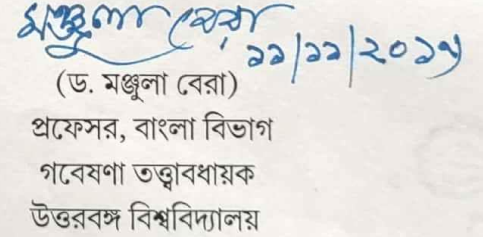 মঞ্জুলা বেরা
২২/১১/২০১৭
(ড. মঞ্জুলা বেরা)
প্রফেসর, বাংলা বিভাগ
গবেষণা তত্ত্বাবধায়ক
উত্তরবঙ্গ বিশ্ববিদ্যালয়